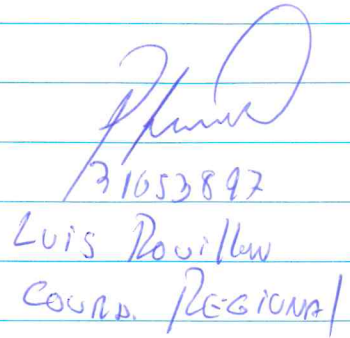 31653897
Luis Rouillon
COORD. REGIONAL